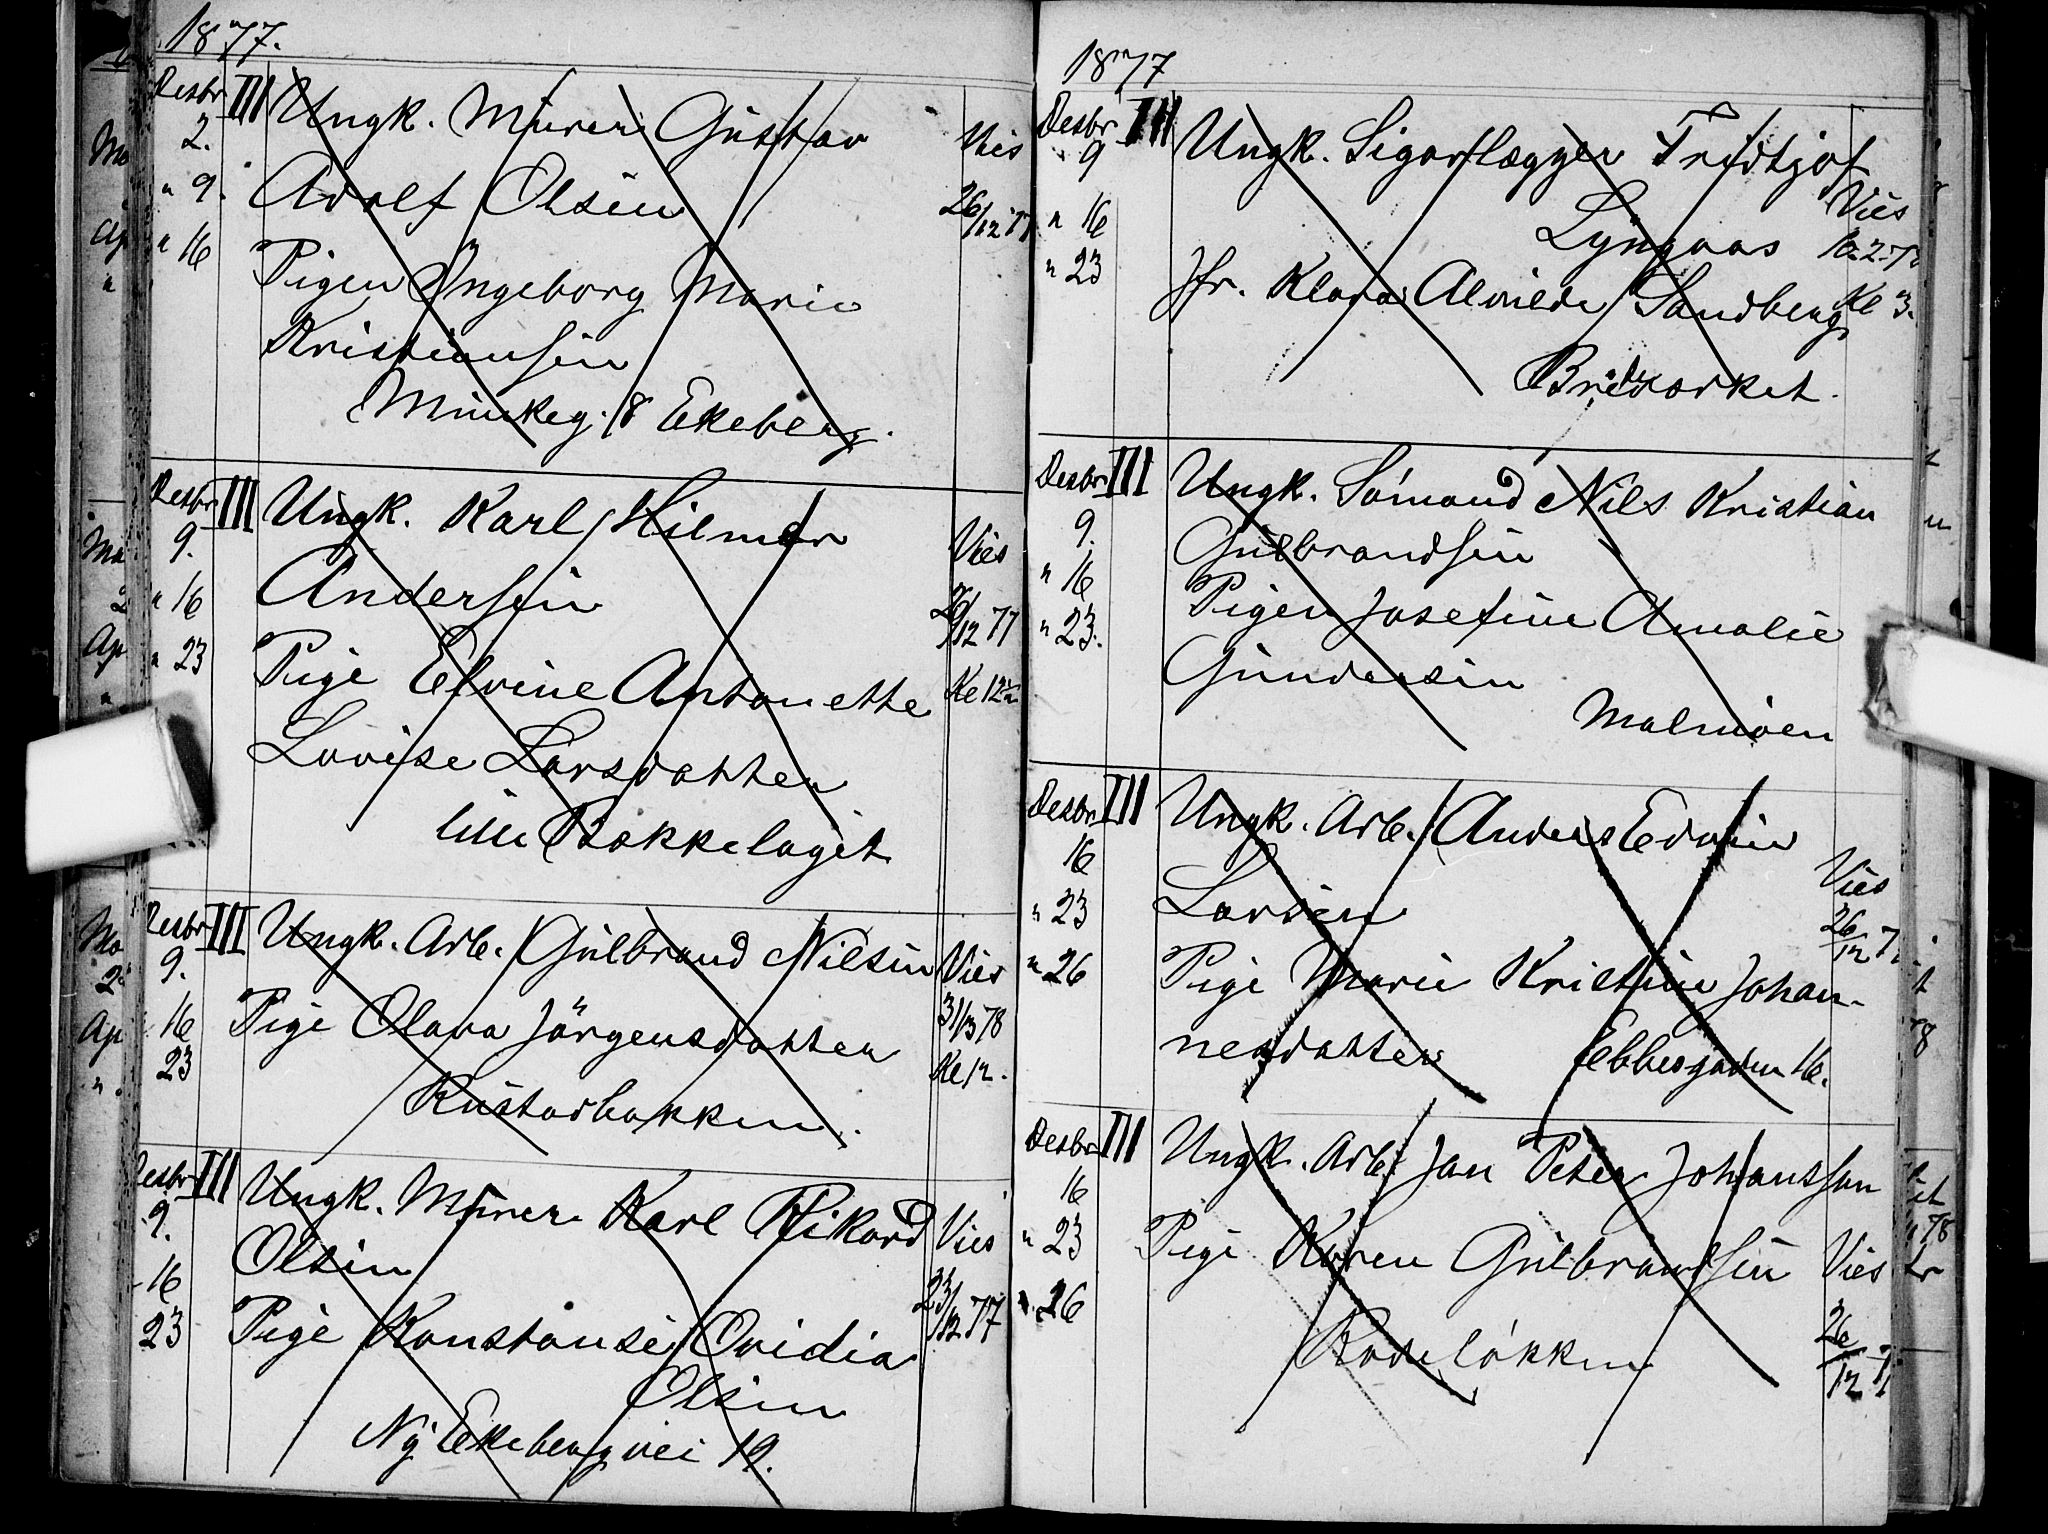 1877.
Desbr III Ungk. Murer Gustav
2. Adolf Olsen Vies
" 9. 26/12 77
" 16 Pigen Ingeborg Marie
Kristiansen
Munkeg. 8 Ekeberg.
Desbr III Ungk. Karl Hilmar
9. Andersen Vies
" 16 26/12 77
" 23 Pige Elvine Antonette Kl 12½
Lovise Larsdatter
lille Bækkelaget
Desbr III Ungk. Arb. Gulbrand Nilsen Vies
9.
16 Pige Olava Jörgensdatter 78
23 Kl 12.
Desbr III Ungk. Murer Karl Rikard Vies
9. Olsen
" 16 23/12 77
23 Pige Konstanse Ovidia
Olsen
Ny Ekebergvei 19.
1877
Desbr III Ungk. Sigarflægger Fridtjof
9
" 16 Lyngaas Vies
" 23 Jfr. Klara Alvilde Sandberg Kl 3.
Desbr III Ungk. Sömand Nils Kristian
9. Gulbrandsen
" 16 Pigen Josefine Amalie
" 23. Gundersen
Malmöen
Desbr III Ungk. Arb. Anders Edvin
16 Larsen Vies
" 23 26/12 7
" 26 Pige Marie Kristine Johan-
nesdatter Ebbesgaden 16.
Desbr III Ungk. Arb. Jan Peter Johansson
16
" 23 Pige Karen Gulbrandsen Vies
" 26 Roselökken 26/12